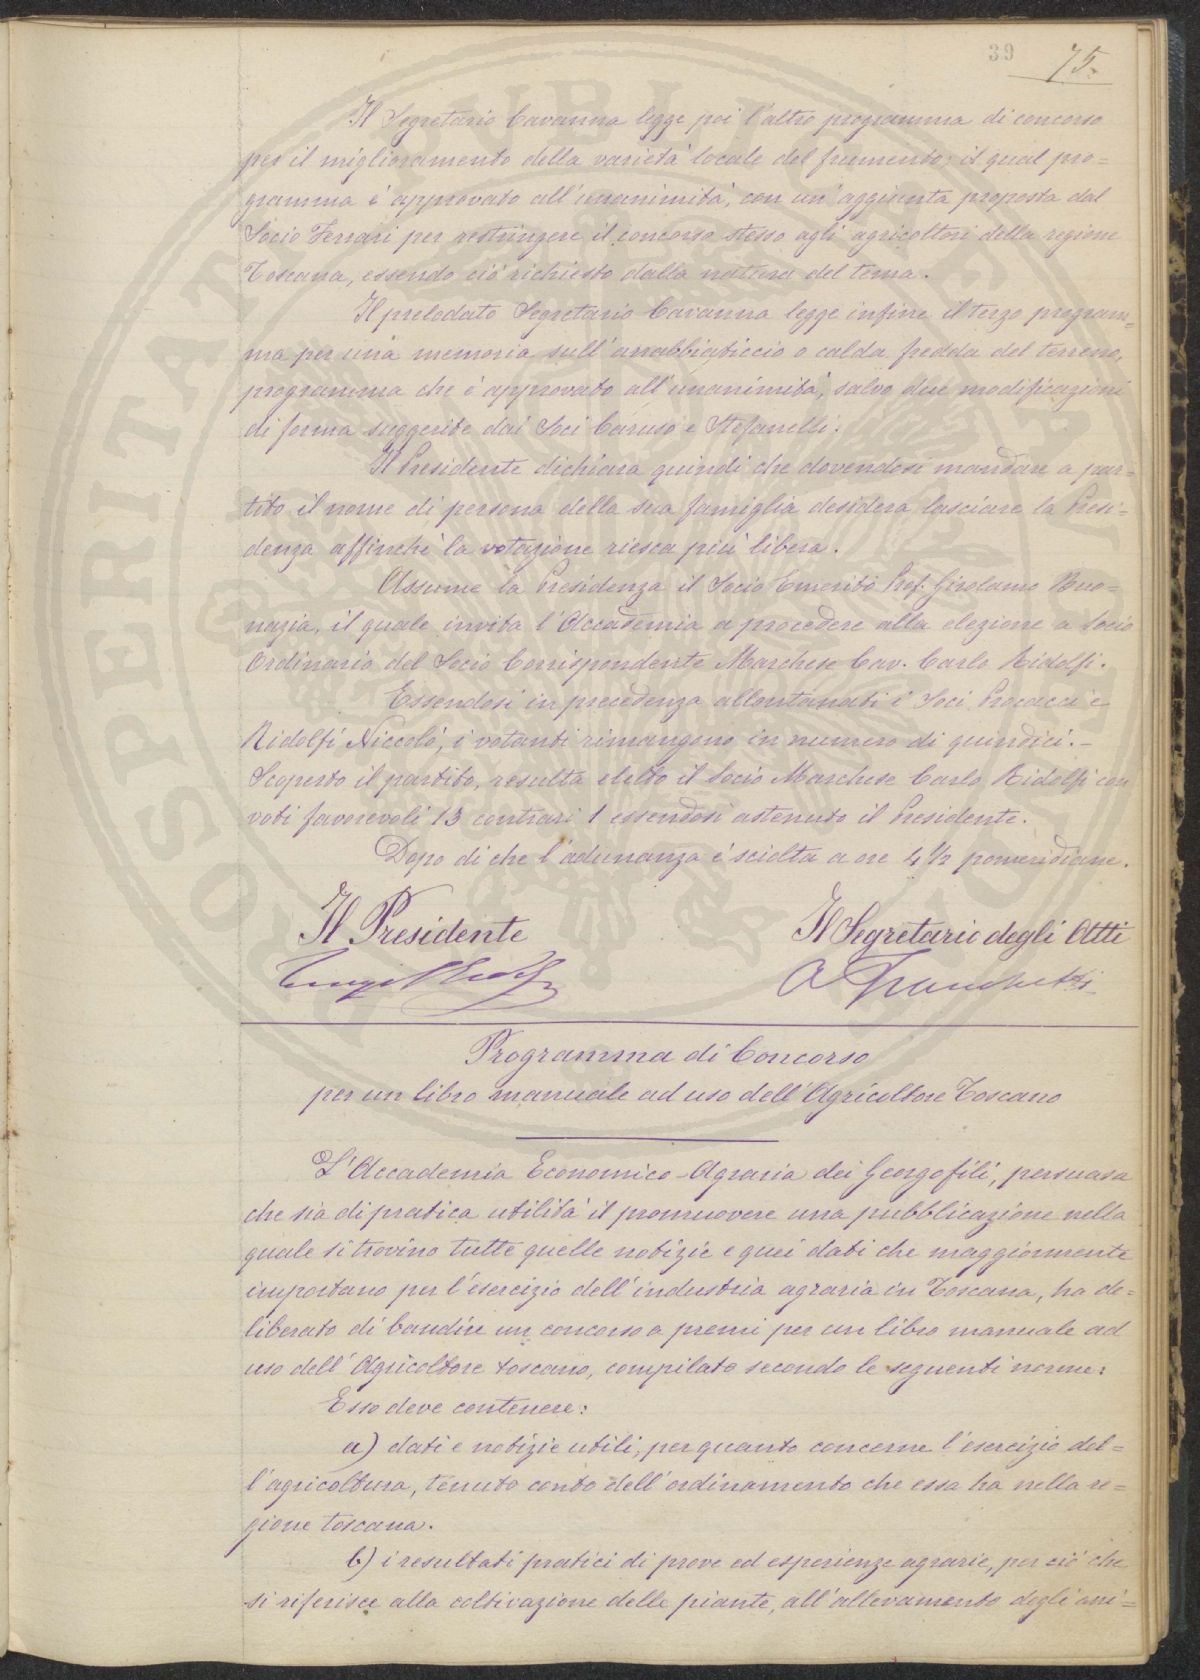 39 75.
Il Segretario Cavanna legge poi l'altro programma di concorso
per il miglioramento della varietà locale del frumento; il qual pro=
gramma è approvato all'unanimità, con un'aggiunta proposta dal
Socio Ferrari per restringere il concorso stesso agli agricoltori della regione
Toscana, essendo ciò richiesto dalla natura del tema.
Il prelodato Segretario Cavanna legge infine il terzo program=
ma per una memoria sull'arrabbiaticcio o calda fredda del terreno,
programma che è approvato all'unanimità, salvo due modificazioni
di forma suggerite dai Soci Caruso e Stefanelli.
Il Presidente dichiara quindi che dovendosi mandare a par=
tito il nome di persona della sua famiglia desidera lasciare la Presi=
denza affinchè la votazione riesca più libera.
Assume la Presidenza il Socio Emerito Prof. Girolamo Buo=
nazia, il quale invita l'Accademia a procedere alla elezione a Socio
Ordinario del Socio Corrispondente Marchese Cav. Carlo Ridolfi.
Essendosi in precedenza allontanati i Soci Procacci e
Ridolfi Niccolò, i votanti rimangono in numero di quindici.-
Scoperto il partito, resulta eletto il Socio Marchese Carlo Ridolfi con
voti favorevoli 13 contrari 1 essendosi astenuto il Presidente.
Dopo di che l'adunanza è sciolta a ore 4 1/2 pomeridiane.
Il Presidente Il Segretario degli Atti
A Franchetti
Programma di Concorso
per un libro manuale ad uso dell'Agricoltore Toscano
L'Accademia Economico-Agraria dei Georgofili, persuasa
che sia di pratica utilità il promuovere una pubblicazione nella
quale si trovino tutte quelle notizie e quei dati che maggiormente
importano per l'esercizio dell'industria agraria in Toscana, ha de=
liberato di bandire un concorso a premi per un libro manuale ad
uso dell'Agricoltore toscano, compilato secondo le seguenti norme:
Esso deve contenere:
a) dati e notizie utili, per quanto concerne l'esercizio del=
l'agricoltura, tenuto conto dell'ordinamento che essa ha nella re=
gione toscana.
b) i resultati pratici di prove ed esperienze agrarie, per ciò che
si riferisce alla coltivazione delle piante, all'allevamento degli ani=